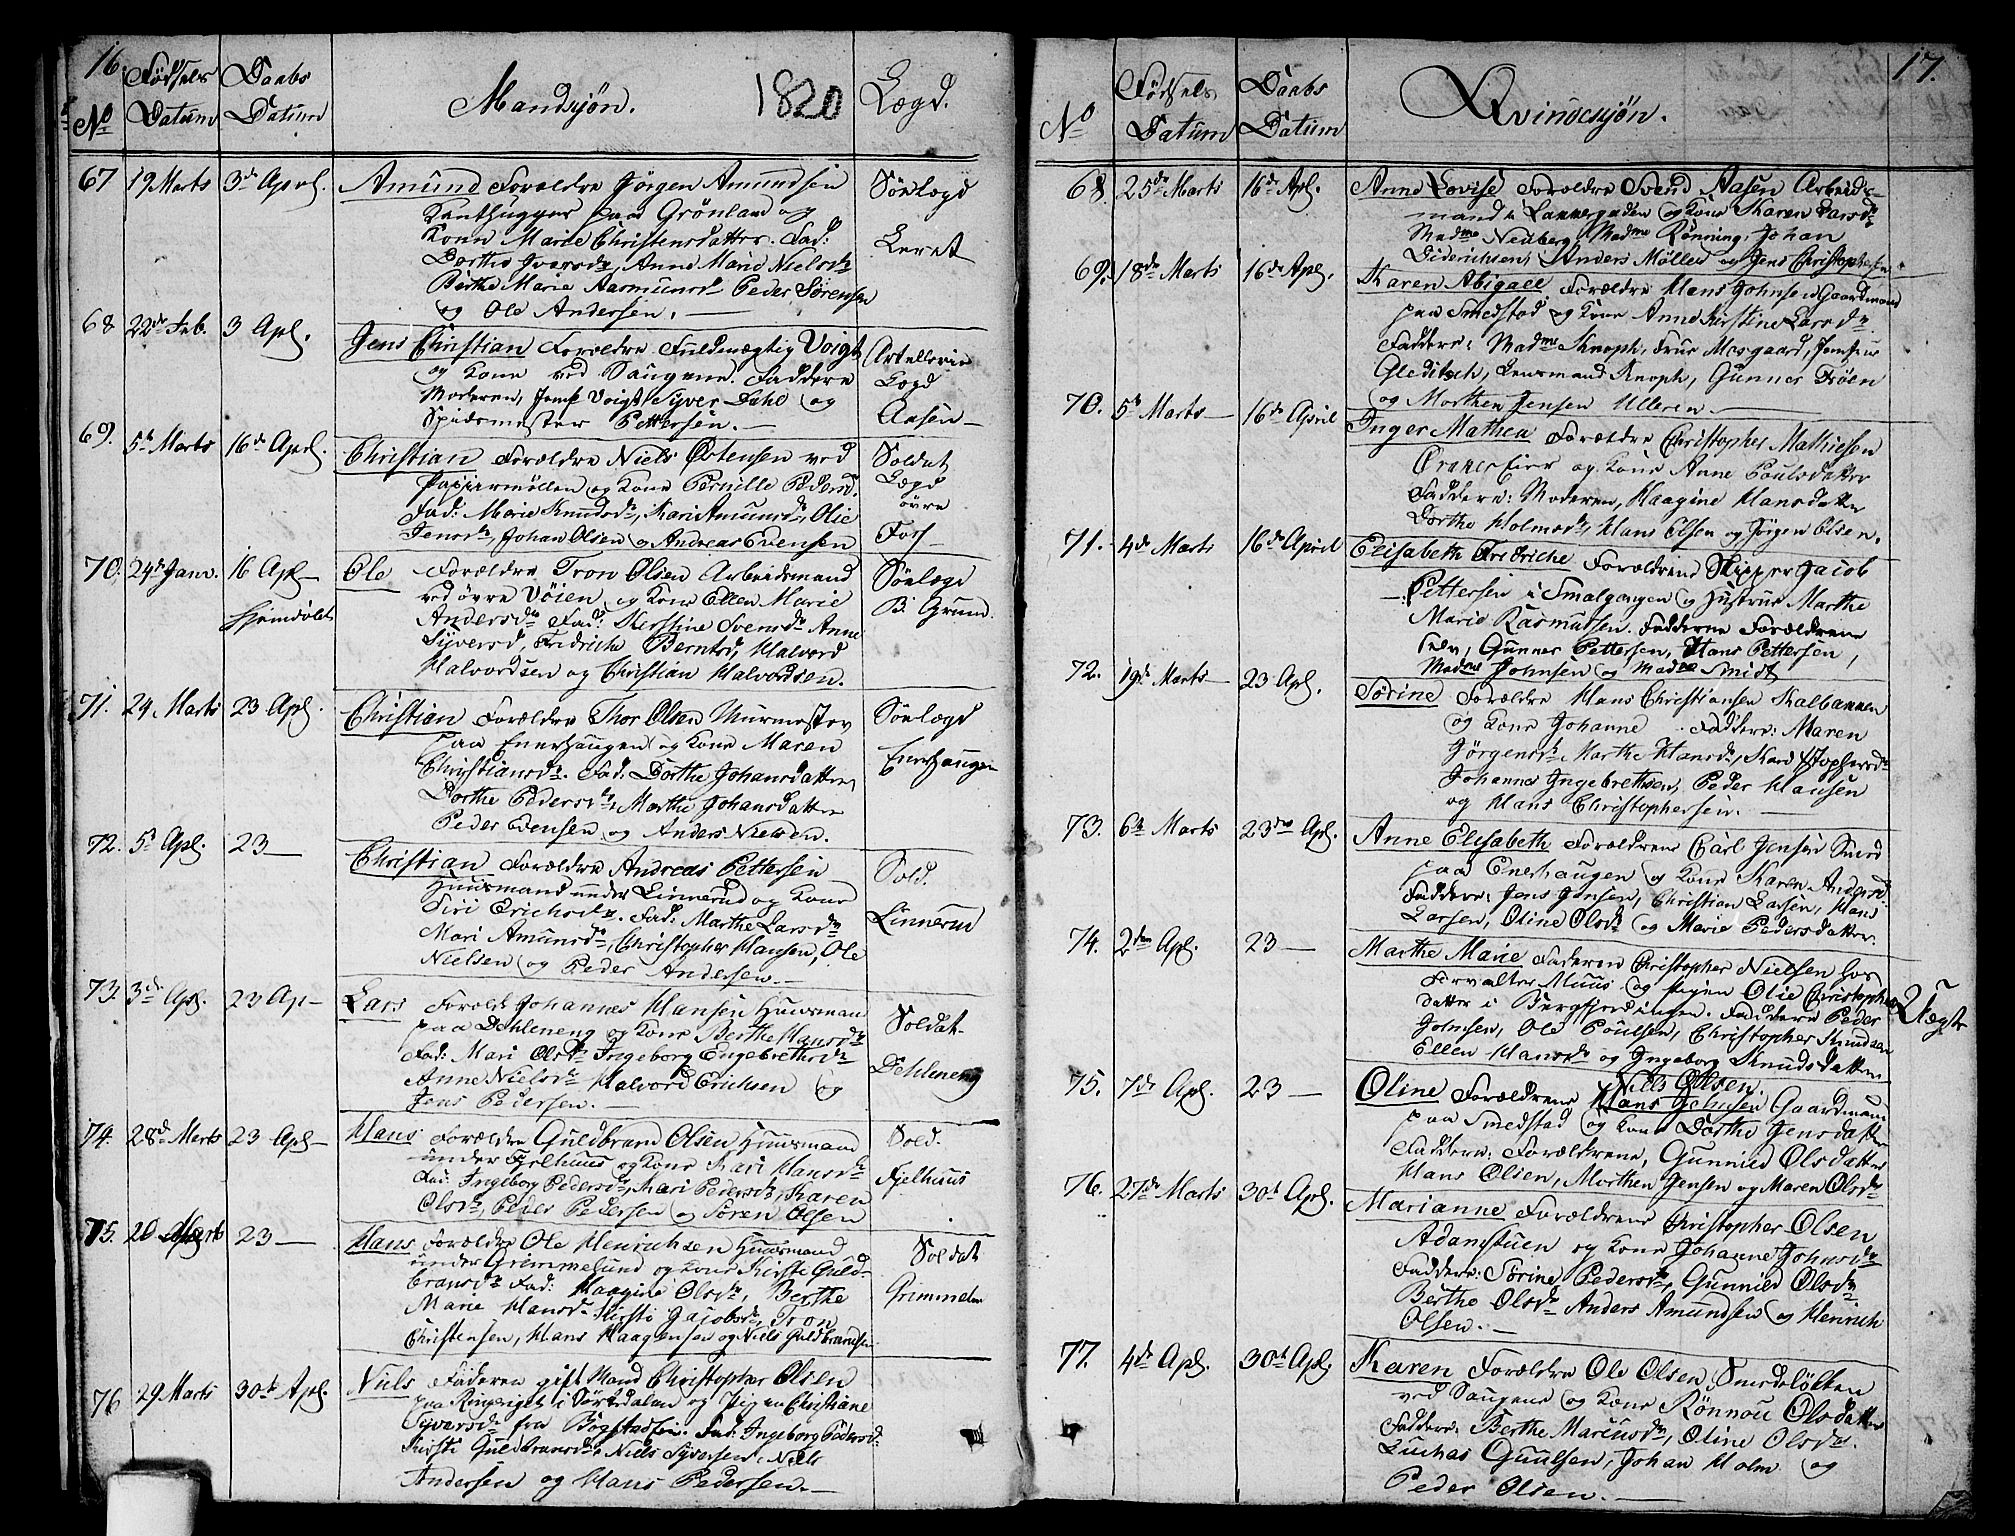 16.
Fødsels Daabs
No Datum Datum Mandkjøn. 1820 Lægd.
67 19 Marts 3de Aprl. Amund Forældre Jørgen Amundsen Søelægd
paa Grønland og
Kone Marie Christensdatter. Fad: Leret
Dorthe Iversdr, Anne Marie Nielsdr
Berthe Marie Aasmunsdr Peder Sørensen
og Ole Andersen.
68 22de Feb. 3 Apl. Jens Christian Forældre Fuldmægtig Voigt Artellerie
og Kone ved Saugene. Faddere Lægd
Moderen, Jomf Voigt Syver Dahl og Aasen
Spidsmester Pettersen.
69. 5te Marts 16de Aprl. Christian Forældre Niels Østensen ved Soldat
Papiirmøllen og Kone Pernille Pedersd. Lægd
Fad: Marie Knudsdr, Kari Amunsdr, Olie øvre
Jensdr, Johan Olsen og Andreas Evensen Fos
70. 24de Janr. 16 Apl Ole Forældre Tron Olsen Arbeidsmand Søelægd
hjemdøbt ved øvre Vøien og Kone Ellen Marie B: Grund.
Andersdr Fad: Kerstine Svensdr Anne
Syversd, Fredriche Berntsd, Halvord
Halvordsen og Christian Halvordsen.
71. 24 Marts 23 Apl. Christian Forældre Thor Olsen Murmester Søelægd
paa Enerhaugen og Kone Maren Enerhaugen
Christiansdr. Fad: Dorthe Johansdatter
Dorthe Pedersdr, Marthe Johansdatter
Peder Evensen og Anders Nielsen.
72. 5te Apl. 23 Christian Forældre Andreas Pettersen Sold.
Huusmand under Linnerud og Kone Linnerud
Siri Erichsdr. Fad: Marthe Larsdr
Mari Amunsdr, Christopher Hansen, Ole
Nielsen og Peder Andersen.
73. 3de Apl. 23 Ap Lars Foræld: Johannes Hansen Huusmand Soldat
paa Dehleneng og Kone Berthe Hansdr Dehleneng
Fad: Mari Olsdr Ingeborg Engebrethsdr
Anne Nielsdr Halvord Erichsen og
Jens Pedersen.
74. 28de Marts 23 Apl Hans Forældre Guldbrand Olsen Huusmand Sold.
under Fjelhuus og Kone Kari Hansdr Fjelhuus
Fad: Ingeborg Pedersdr, Mari Pedersdr, Karen
Olsdr, Peder Pedersen og Søren Olsen
75. 20 Marts 23 Hans Forældre Ole Henrichsen Huusmand Soldat
under Grimmelund og Kone Kirsti Guld- Grimmelun
bransdr Fad: Haagine Olsdr, Berthe
Marie Hansdr Kirsti Jacobsdr, Tron
Christensen, Hans Haagensen og Niels Guldbrandsen
76 29 Marts 30te Apl. Niels Faderen gift Mand Christopher Olsen
paa Ringeriget i Sørkedalen og Pigen Christiane
Syversdr fra Bogstad Fad: Ingeborg Pedersdr
Kirsti Guldbransdr Niels Syversen, Niels
Andersen og Hans Pedersen.
17.
Fødsels Daabs
No Datum Datum Qvindekjøn.
68 25de Marts 16de Apl. Anne Lovise Forældre Svend Aasen Arbeids-
mand i Lakkergaden og Kone Karen Larsdr
Madme Neuberg, Madme Rønning, Johan
Diderichsen, Anders Møller og Jens Christophersen
69. 18de Marts 16de Apl. Karen Abigael Forældre Hans Johnsen Gaardmand
paa Smedstad og Kone Anne Kirstine Larsdr
Faddere: Madme Knoph, Frue Mosgaard, Jomfrue
Gleditsch, Lensmand Knoph, Gunner Frøen
og Morthen Jensen Ulleren
70. 5te Marts 16de April Inger Mathea Forældre Christopher Mathiesen
Ørakereier og Kone Anne Poulsdatter
Faddere: Moderen, Haagine Hansdatter
Dorthe Holmsdr, Hans Olsen og Jørgen Olsen.
71. 4de Marts 16de April Elisabeth Fredriche Forældrene Skipper Jacob
Pettersen i Smalgangen og Hustrue Marthe
Marie Rasmussen. Fadderne Forældrene
selv, Gunner Pettersen, Hans Pettersen,
Madme Johnsen og Madme Smidt
72. 19de Marts 23 Apl. Sørine Forældre Hans Christiansen Kalbakken
og Kone Johanne. Faddere: Maren
Jørgensdr Marthe Hansdr, Kari Stophersdr
Johannes Ingebrethsen, Peder Hansen
og Hans Christophersen.
73. 6te Marts 23de Apl. Anne Elisabeth Forældrene Carl Jensen Smed
paa Enerhaugen og Kone Karen Andersd.
Faddere: Jens Jansen, Christian Larsen, Hans
Larsen, Oline Olsdr og Marie Pedersdatter.
74. 2den Apl. 23 Marthe Marie Faderen Christopher Nielsen hos
Forvalter Muus og Pigen Olie Christophers
datter i Bergfjerdingen. Faddere Peder
Johnsen, Ole Poulsen, Christopher Knudsen
Ellen Hansdr og Ingeborg Knudsdatter
75. 7de Apl. 23 Niels Olsen
Oline Forældrene Hans Johnsen Gaardmand
paa Smedstad og Kone Dorthe Jensdatter
Faddere: Forældrene, Gunnild Olsdatter
Hans Olsen, Morthen Jensen og Maren Olsdr
76. 27de Marts 30te Apl. Marianne Forældrene Christopher Olsen
Adamstuen og Kone Johanne Johnsdr
Faddere: Sørine Pedersdr, Gunnild Olsdr
Berthe Olsdr Anders Amundsen og Henrich
Olsen.
77. 4de Apl. 30te Apl. Karen Forældre Ole Olsen Smedeløkken
ved Saugene og Kone Rønnou Olsdatter
Faddere: Berthe Mariusdr, Oline Olsdr.
Luchas Guulsen, Johan Holm og
Peder Olsen.